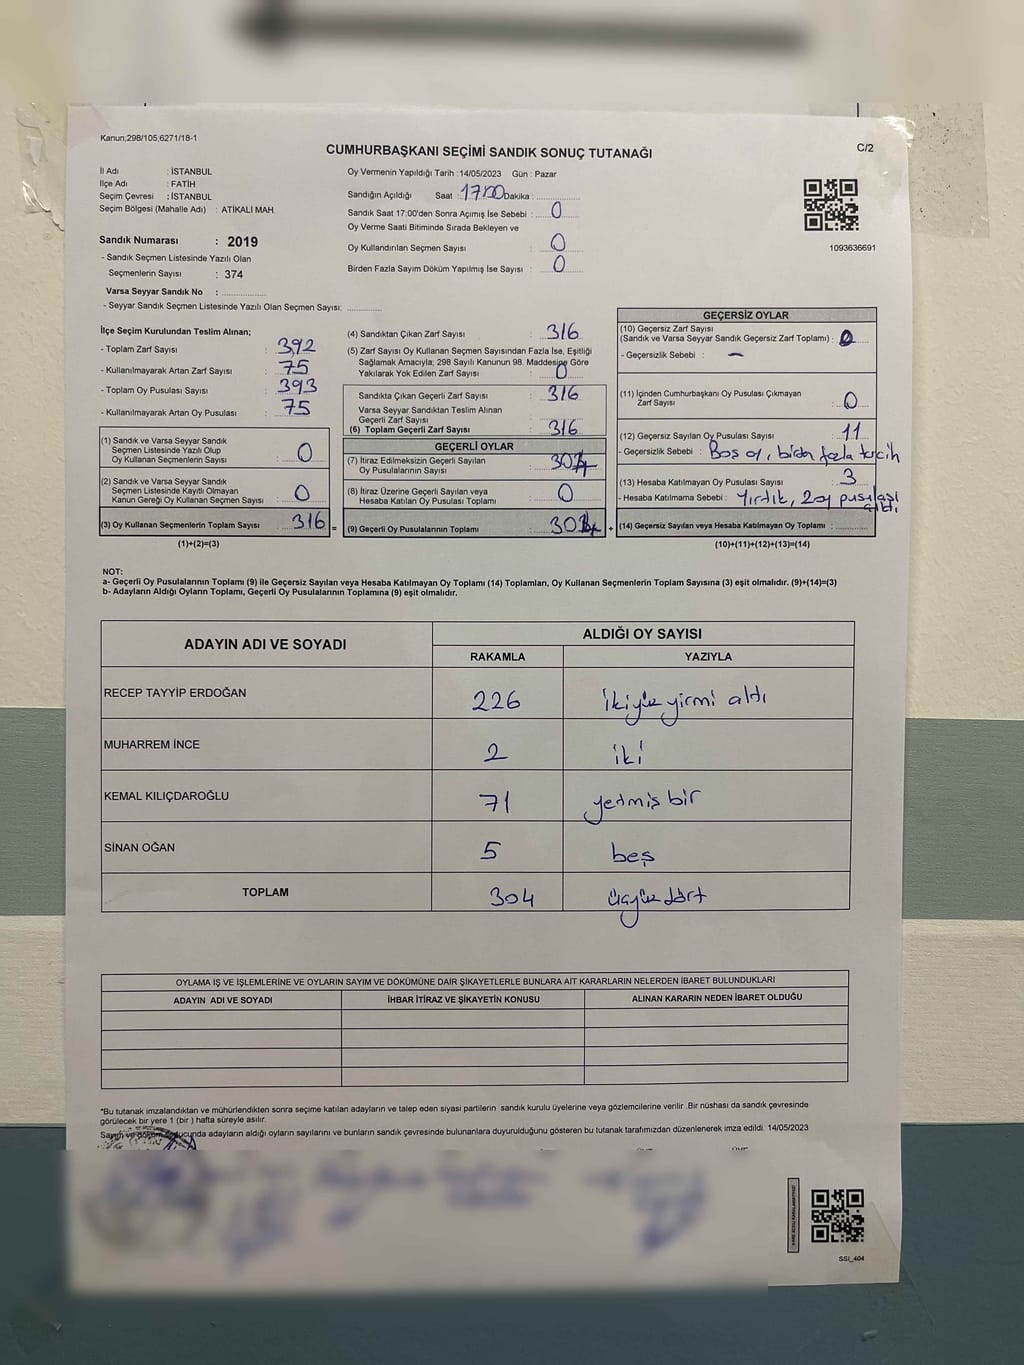 Kanun;298/105;6271/18-1
CUMHURBAŞKANI SEÇİMİ SANDIK SONUÇ TUTANAĞI
C/2
İl Adı : İSTANBUL
İlçe Adı : FATİH
Seçim Çevresi : İSTANBUL
Seçim Bölgesi (Mahalle Adı) : ATİKALİ MAH.
Sandık Numarası : 2019
- Sandık Seçmen Listesinde Yazılı Olan
Seçmenlerin Sayısı : 374
Varsa Seyyar Sandık No : ....................
- Seyyar Sandık Seçmen Listesinde Yazılı Olan Seçmen Sayısı: ...............
Oy Vermenin Yapıldığı Tarih :14/05/2023 Gün : Pazar
Sandığın Açıldığı Saat :17:00 Dakika :
Sandık Saat 17:00'den Sonra Açımış İse Sebebi : 0
Oy Verme Saati Bitiminde Sırada Bekleyen ve
Oy Kullandırılan Seçmen Sayısı : 0
Birden Fazla Sayım Döküm Yapılmış İse Sayısı : 0
1093636691
İlçe Seçim Kurulundan Teslim Alınan;
- Toplam Zarf Sayısı : 392
- Kullanılmayarak Artan Zarf Sayısı : 75
- Toplam Oy Pusulası Sayısı : 393
- Kullanılmayarak Artan Oy Pusulası : 75
(1) Sandık ve Varsa Seyyar Sandık
Seçmen Listesinde Yazılı Olup
Oy Kullanan Seçmenlerin Sayısı : 0
(2) Sandık ve Varsa Seyyar Sandık
Seçmen Listesinde Kayıtlı Olmayan
Kanun Gereği Oy Kullanan Seçmen Sayısı : 0
(3) Oy Kullanan Seçmenlerin Toplam Sayısı : 316
(1)+(2)=(3)
=
(4) Sandıktan Çıkan Zarf Sayısı : 316
(5) Zarf Sayısı Oy Kullanan Seçmen Sayısından Fazla İse, Eşitliği
Sağlamak Amacıyla; 298 Sayılı Kanunun 98. Maddesine Göre
Yakılarak Yok Edilen Zarf Sayısı : 0
Sandıkta Çıkan Geçerli Zarf Sayısı : 316
Varsa Seyyar Sandıktan Teslim Alınan
Geçerli Zarf Sayısı :
(6) Toplam Geçerli Zarf Sayısı : 316
GEÇERLİ OYLAR
(7) İtiraz Edilmeksizin Geçerli Sayılan
Oy Pusulalarının Sayısı : 304
(8) İtiraz Üzerine Geçerli Sayılan veya
Hesaba Katılan Oy Pusulası Toplamı : 0
(9) Geçerli Oy Pusulalarının Toplamı : 304
+
GEÇERSİZ OYLAR
(10) Geçersiz Zarf Sayısı
(Sandık ve Varsa Seyyar Sandık Geçersiz Zarf Toplamı) : 0
- Geçersizlik Sebebi : —
(11) İçinden Cumhurbaşkanı Oy Pusulası Çıkmayan
Zarf Sayısı : 0
(12) Geçersiz Sayılan Oy Pusulası Sayısı : 11
- Geçersizlik Sebebi : Boş oy, birden fazla tercih
(13) Hesaba Katılmayan Oy Pusulası Sayısı : 3
- Hesaba Katılmama Sebebi : Yırtık, 2 oy pusulası
çıktı
(14) Geçersiz Sayılan veya Hesaba Katılmayan Oy Toplamı : ............
(10)+(11)+(12)+(13)=(14)
NOT:
a- Geçerli Oy Pusulalarının Toplamı (9) ile Geçersiz Sayılan veya Hesaba Katılmayan Oy Toplamı (14) Toplamları, Oy Kullanan Seçmenlerin Toplam Sayısına (3) eşit olmalıdır. (9)+(14)=(3)
b- Adayların Aldığı Oyların Toplamı, Geçerli Oy Pusulalarının Toplamına (9) eşit olmalıdır.
ADAYIN ADI VE SOYADI
ALDIĞI OY SAYISI
RAKAMLA YAZIYLA
RECEP TAYYİP ERDOĞAN 226 ikiyüz yirmi altı
MUHARREM İNCE 2 iki
KEMAL KILIÇDAROĞLU 71 yetmiş bir
SİNAN OĞAN 5 beş
TOPLAM 304 üçyüz dört
OYLAMA İŞ VE İŞLEMLERİNE VE OYLARIN SAYIM VE DÖKÜMÜNE DAİR ŞİKAYETLERLE BUNLARA AİT KARARLARIN NELERDEN İBARET BULUNDUKLARI
ADAYIN ADI VE SOYADI İHBAR İTİRAZ VE ŞİKAYETİN KONUSU ALINAN KARARIN NEDEN İBARET OLDUĞU
*Bu tutanak imzalandıktan ve mühürlendikten sonra seçime katılan adayların ve talep eden siyasi partilerin sandık kurulu üyelerine veya gözlemcilerine verilir .Bir nüshası da sandık çevresinde
görülecek bir yere 1 (bir ) hafta süreyle asılır.
Sayım ve döküm sonucunda adayların aldığı oyların sayılarını ve bunların sandık çevresinde bulunanlara duyurulduğunu gösteren bu tutanak tarafımızdan düzenlenerek imza edildi. 14/05/2023
SSI_404